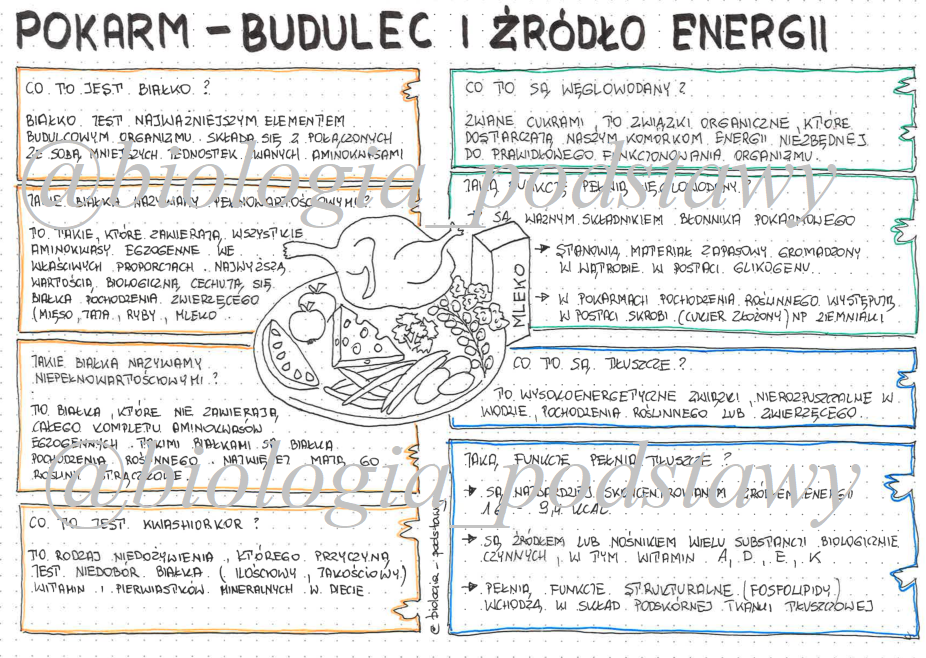 POKARM – BUDULEC I ŹRÓDŁO ENERGII
CO TO JEST BIAŁKO ?
BIAŁKO JEST NAJWAŻNIEJSZYM ELEMENTEM
BUDULCOWYM ORGANIZMU. SKŁADA SIĘ Z POŁĄCZONYCH
ZE SOBĄ MNIEJSZYCH JEDNOSTEK ZWANYCH AMINOKWASAMI
JAKIE BIAŁKA NAZYWAMY PEŁNOWARTOŚCIOWYMI ?
TO TAKIE, KTÓRE ZAWIERAJĄ WSZYSTKIE
AMINOKWASY EGZOGENNE WE
WŁAŚCIWYCH PROPORCJACH. NAJWYŻSZĄ
WARTOŚCIĄ BIOLOGICZNĄ CECHUJĄ SIĘ
BIAŁKA POCHODZENIA ZWIERZĘCEGO
(MIĘSO, JAJA, RYBY, MLEKO
JAKIE BIAŁKA NAZYWAMY
NIEPEŁNOWARTOŚCIOWYMI ?
TO BIAŁKA, KTÓRE NIE ZAWIERAJĄ
CAŁEGO KOMPLETU AMINOKWASÓW
EGZOGENNYCH. TAKIMI BIAŁKAMI SĄ BIAŁKA
POCHODZENIA ROŚLINNEGO. NAJWIĘCEJ MAJĄ GO
ROŚLINY STRĄCZKOWE.
CO TO JEST KWASHIORKOR ?
TO RODZAJ NIEDOŻYWIENIA, KTÓREGO PRZYCZYNĄ
JEST NIEDOBÓR BIAŁKA (ILOŚCIOWY, JAKOŚCIOWY)
WITAMIN I PIERWIASTKÓW MINERALNYCH W DIECIE.
MLEKO
@biologia_podstawy
CO TO SĄ WĘGLOWODANY ?
ZWANE CUKRAMI, TO ZWIĄZKI ORGANICZNE, KTÓRE
DOSTARCZAJĄ NASZYM KOMÓRKOM ENERGII NIEZBĘDNEJ
DO PRAWIDŁOWEGO FUNKCJONOWANIA ORGANIZMU.
JAKĄ FUNKCJĘ PEŁNIĄ WĘGLOWODANY ?
→ SĄ WAŻNYM SKŁADNIKIEM BŁONNIKA POKARMOWEGO
→ STANOWIĄ MATERIAŁ ZAPASOWY GROMADZONY
W WĄTROBIE W POSTACI GLIKOGENU.
→ W POKARMACH POCHODZENIA ROŚLINNEGO WYSTĘPUJĄ
W POSTACI SKROBI (CUKIER ZŁOŻONY) NP ZIEMNIAKI
CO TO SĄ TŁUSZCZE ?
TO WYSOKOENERGETYCZNE ZWIĄZKI, NIEROZPUSZCZALNE W
WODZIE, POCHODZENIA ROŚLINNEGO LUB ZWIERZĘCEGO.
JAKĄ FUNKCJĘ PEŁNIĄ TŁUSZCZE ?
→ SĄ NAJBARDZIEJ SKONCENTROWANYM ŹRÓDŁEM ENERGII
9,4 KCAL
→ SĄ ŹRÓDŁEM LUB NOŚNIKIEM WIELU SUBSTANCJI BIOLOGICZNIE
CZYNNYCH, W TYM WITAMIN A, D, E, K
→ PEŁNIĄ FUNKCJE STRUKTURALNE (FOSFOLIPIDY)
WCHODZĄ W SKŁAD PODSKÓRNEJ TKANKI TŁUSZCZOWEJ
@biologia_podstawy
@biologia_podstawy